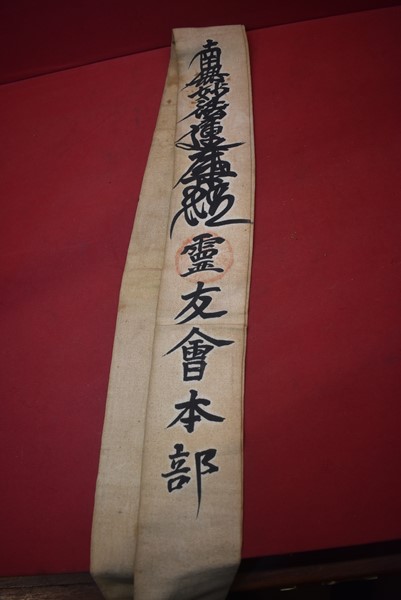 南無妙法蓮華経霊友會本部